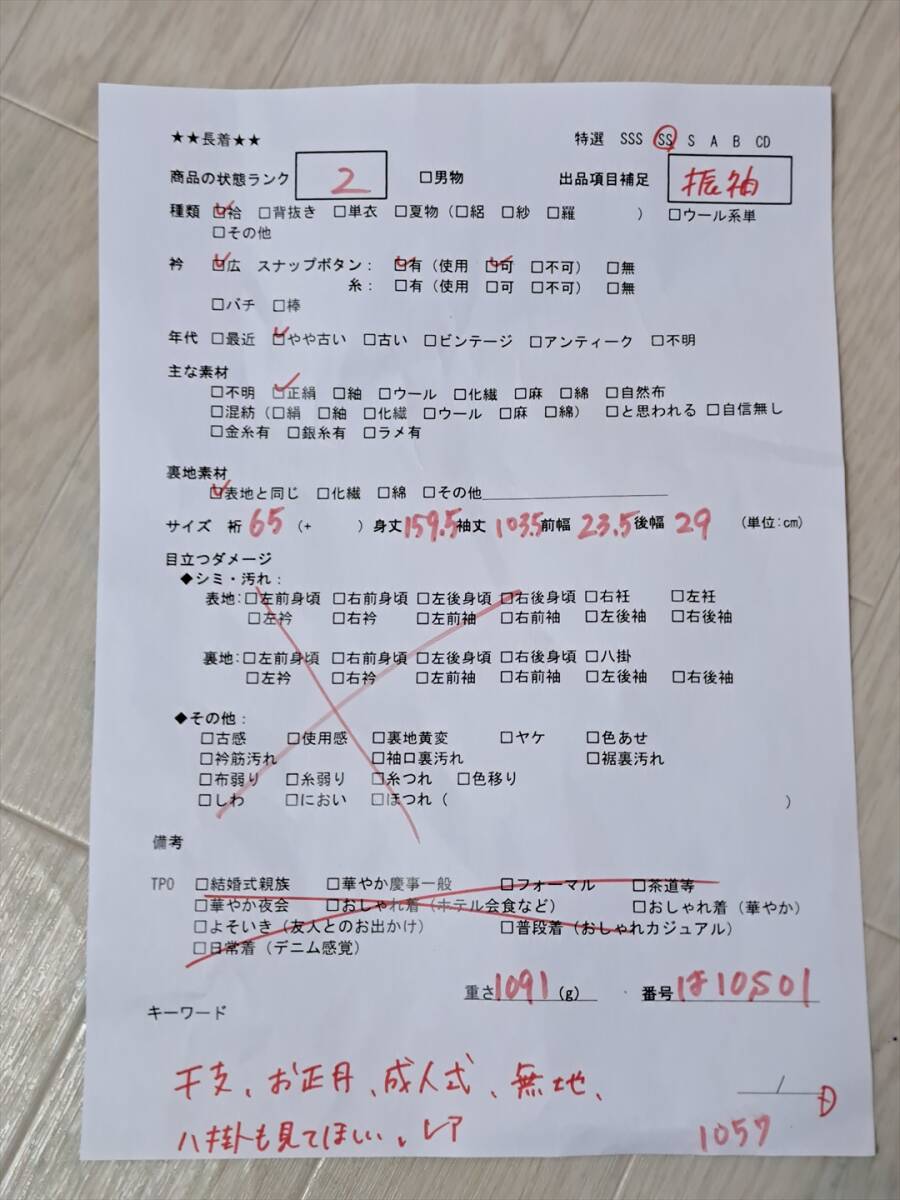 ★★長着★★ 特選 SSS SS S A B CD
商品の状態ランク 2 □男物 出品項目補足 振袖
種類 ☑袷 □背抜き □単衣 □夏物(□絽 □紗 □羅 ) □ウール系単
□その他
衿 ☑広 スナップボタン: ☑有(使用 ☑可 □不可) □無
糸:□有(使用 □可 □不可) □無
□バチ □棒
年代 □最近 ☑やや古い □古い □ビンテージ □アンティーク □不明
主な素材
□不明 ☑正絹 □紬 □ウール □化繊 □麻 □綿 □自然布
□混紡(□絹 □紬 □化繊 □ウール □麻 □綿) □と思われる □自信無し
□金糸有 □銀糸有 □ラメ有
裏地素材
☑表地と同じ □化繊 □綿 □その他
サイズ 裄 65 (+ ) 身丈 159.5 袖丈 103.5 前幅 23.5 後幅 29 (単位:cm)
目立つダメージ
◆シミ・汚れ:
表地:□左前身頃 □右前身頃 □左後身頃 □右後身頃 □右衽 □左衽
□左衿 □右衿 □左前袖 □右前袖 □左後袖 □右後袖
裏地:□左前身頃 □右前身頃 □左後身頃 □右後身頃 □八掛
□左衿 □右衿 □左前袖 □右前袖 □左後袖 □右後袖
◆その他:
□古感 □使用感 □裏地黄変 □ヤケ □色あせ
□衿筋汚れ □袖口裏汚れ □裾裏汚れ
□布弱り □糸弱り □糸つれ □色移り
□しわ □におい □ほつれ( )
備考
TPO □結婚式親族 □華やか慶事一般 □フォーマル □茶道等
□華やか夜会 □おしゃれ着(ホテル会食など) □おしゃれ着(華やか)
□よそいき(友人とのお出かけ) □普段着(おしゃれカジュアル)
□日常着(デニム感覚)
重さ 1091 (g) 番号 は10501
キーワード
干支、お正月、成人式、無地、
八掛も見てほしい、レア
1057